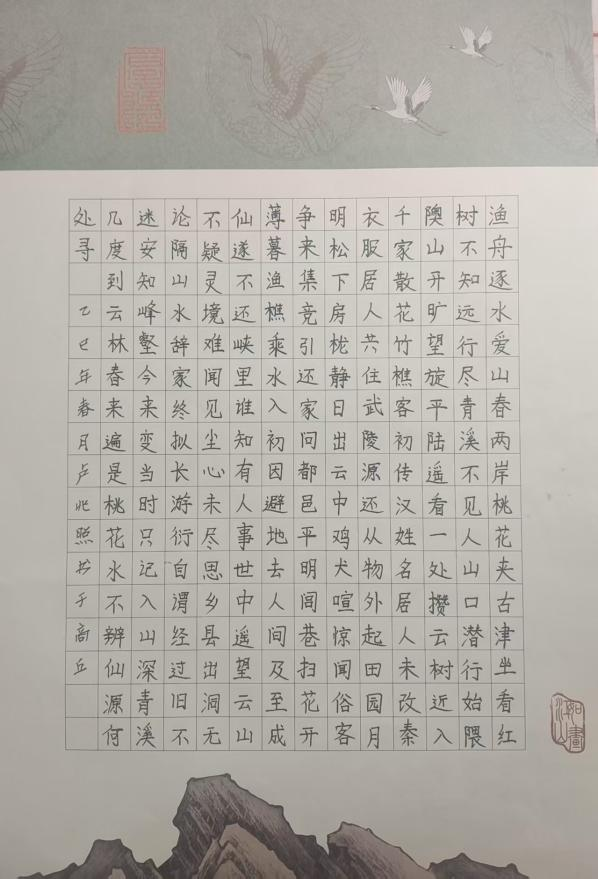 渔舟逐水爱山春两岸桃花夹古津坐看红
树不知远行尽青溪不见人山口潜行始隈
隩山开旷望旋平陆遥看一处攒云树近入
千家散花竹樵客初传汉姓名居人未改秦
衣服居人共住武陵源还从物外起田园月
明松下房栊静日出云中鸡犬喧惊闻俗客
争来集竞引还家问都邑平明闾巷扫花开
薄暮渔樵乘水入初因避地去人间及至成
仙遂不还峡里谁知有人事世中遥望云山
不疑灵境难闻见尘心未尽思乡县出洞无
论隔山水辞家终拟长游衍自谓经过旧不
迷安知峰壑今来变当时只记入山深青溪
几度到云林春来遍是桃花水不辨仙源何
处寻 乙巳年春月卢兆照书于高丘
如畫江山